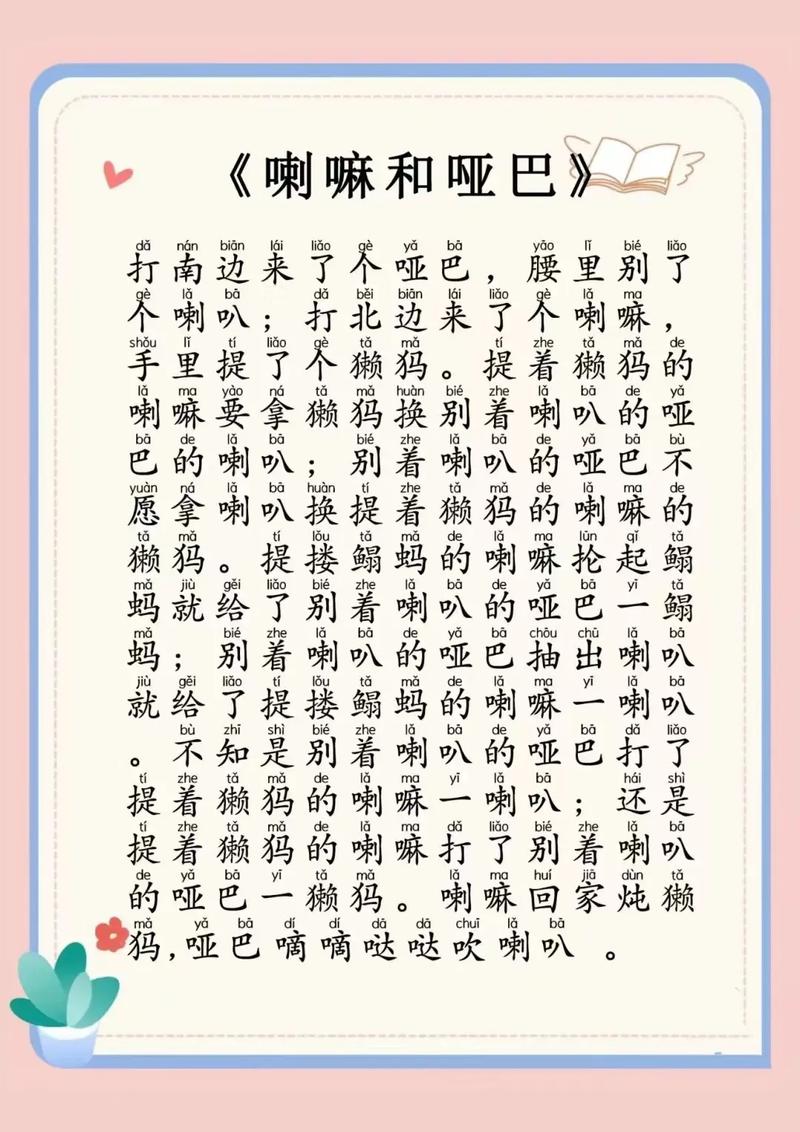 《喇嘛和哑巴》
dǎ nán biān lái liǎo gè yǎ bā yāo lǐ bié liǎo
打南边来了个哑巴，腰里别了
gè lǎ bā dǎ běi biān lái liǎo gè lǎ ma
个喇叭；打北边来了个喇嘛，
shǒu lǐ tí liǎo gè tǎ mǎ tí zhe tǎ mǎ de
手里提了个獭犸。提着獭犸的
lǎ ma yào ná tǎ mǎ huàn bié zhe lǎ bā de yǎ
喇嘛要拿獭犸换别着喇叭的哑
bā de lǎ bā bié zhe lǎ bā de yǎ bā bù
巴的喇叭；别着喇叭的哑巴不
yuàn ná lǎ bā huàn tí zhe tǎ mǎ de lǎ ma de
愿拿喇叭换提着獭犸的喇嘛的
tǎ mǎ tí lǒu tǎ mǎ de lǎ ma lūn qǐ tǎ
獭犸。提搂鳎蚂的喇嘛抡起鳎
mǎ jiù gěi liǎo bié zhe lǎ bā de yǎ bā yī tǎ
蚂就给了别着喇叭的哑巴一鳎
mǎ bié zhe lǎ bā de yǎ bā chōu chū lǎ bā
蚂；别着喇叭的哑巴抽出喇叭
jiù gěi liǎo tí lǒu tǎ mǎ de lǎ ma yī lǎ bā
就给了提搂鳎蚂的喇嘛一喇叭
bù zhī shì bié zhe lǎ bā de yǎ bā dǎ liǎo
。不知是别着喇叭的哑巴打了
tí zhe tǎ mǎ de lǎ ma yī lǎ bā hái shì
提着獭犸的喇嘛一喇叭；还是
tí zhe tǎ mǎ de lǎ ma dǎ liǎo bié zhe lǎ bā
提着獭犸的喇嘛打了别着喇叭
de yǎ bā yī tǎ mǎ lǎ ma huí jiā dùn tǎ
的哑巴一獭犸。喇嘛回家炖獭
mǎ yǎ bā dí dí dā dā chuī lǎ bā
犸,哑巴嘀嘀哒哒吹喇叭 。